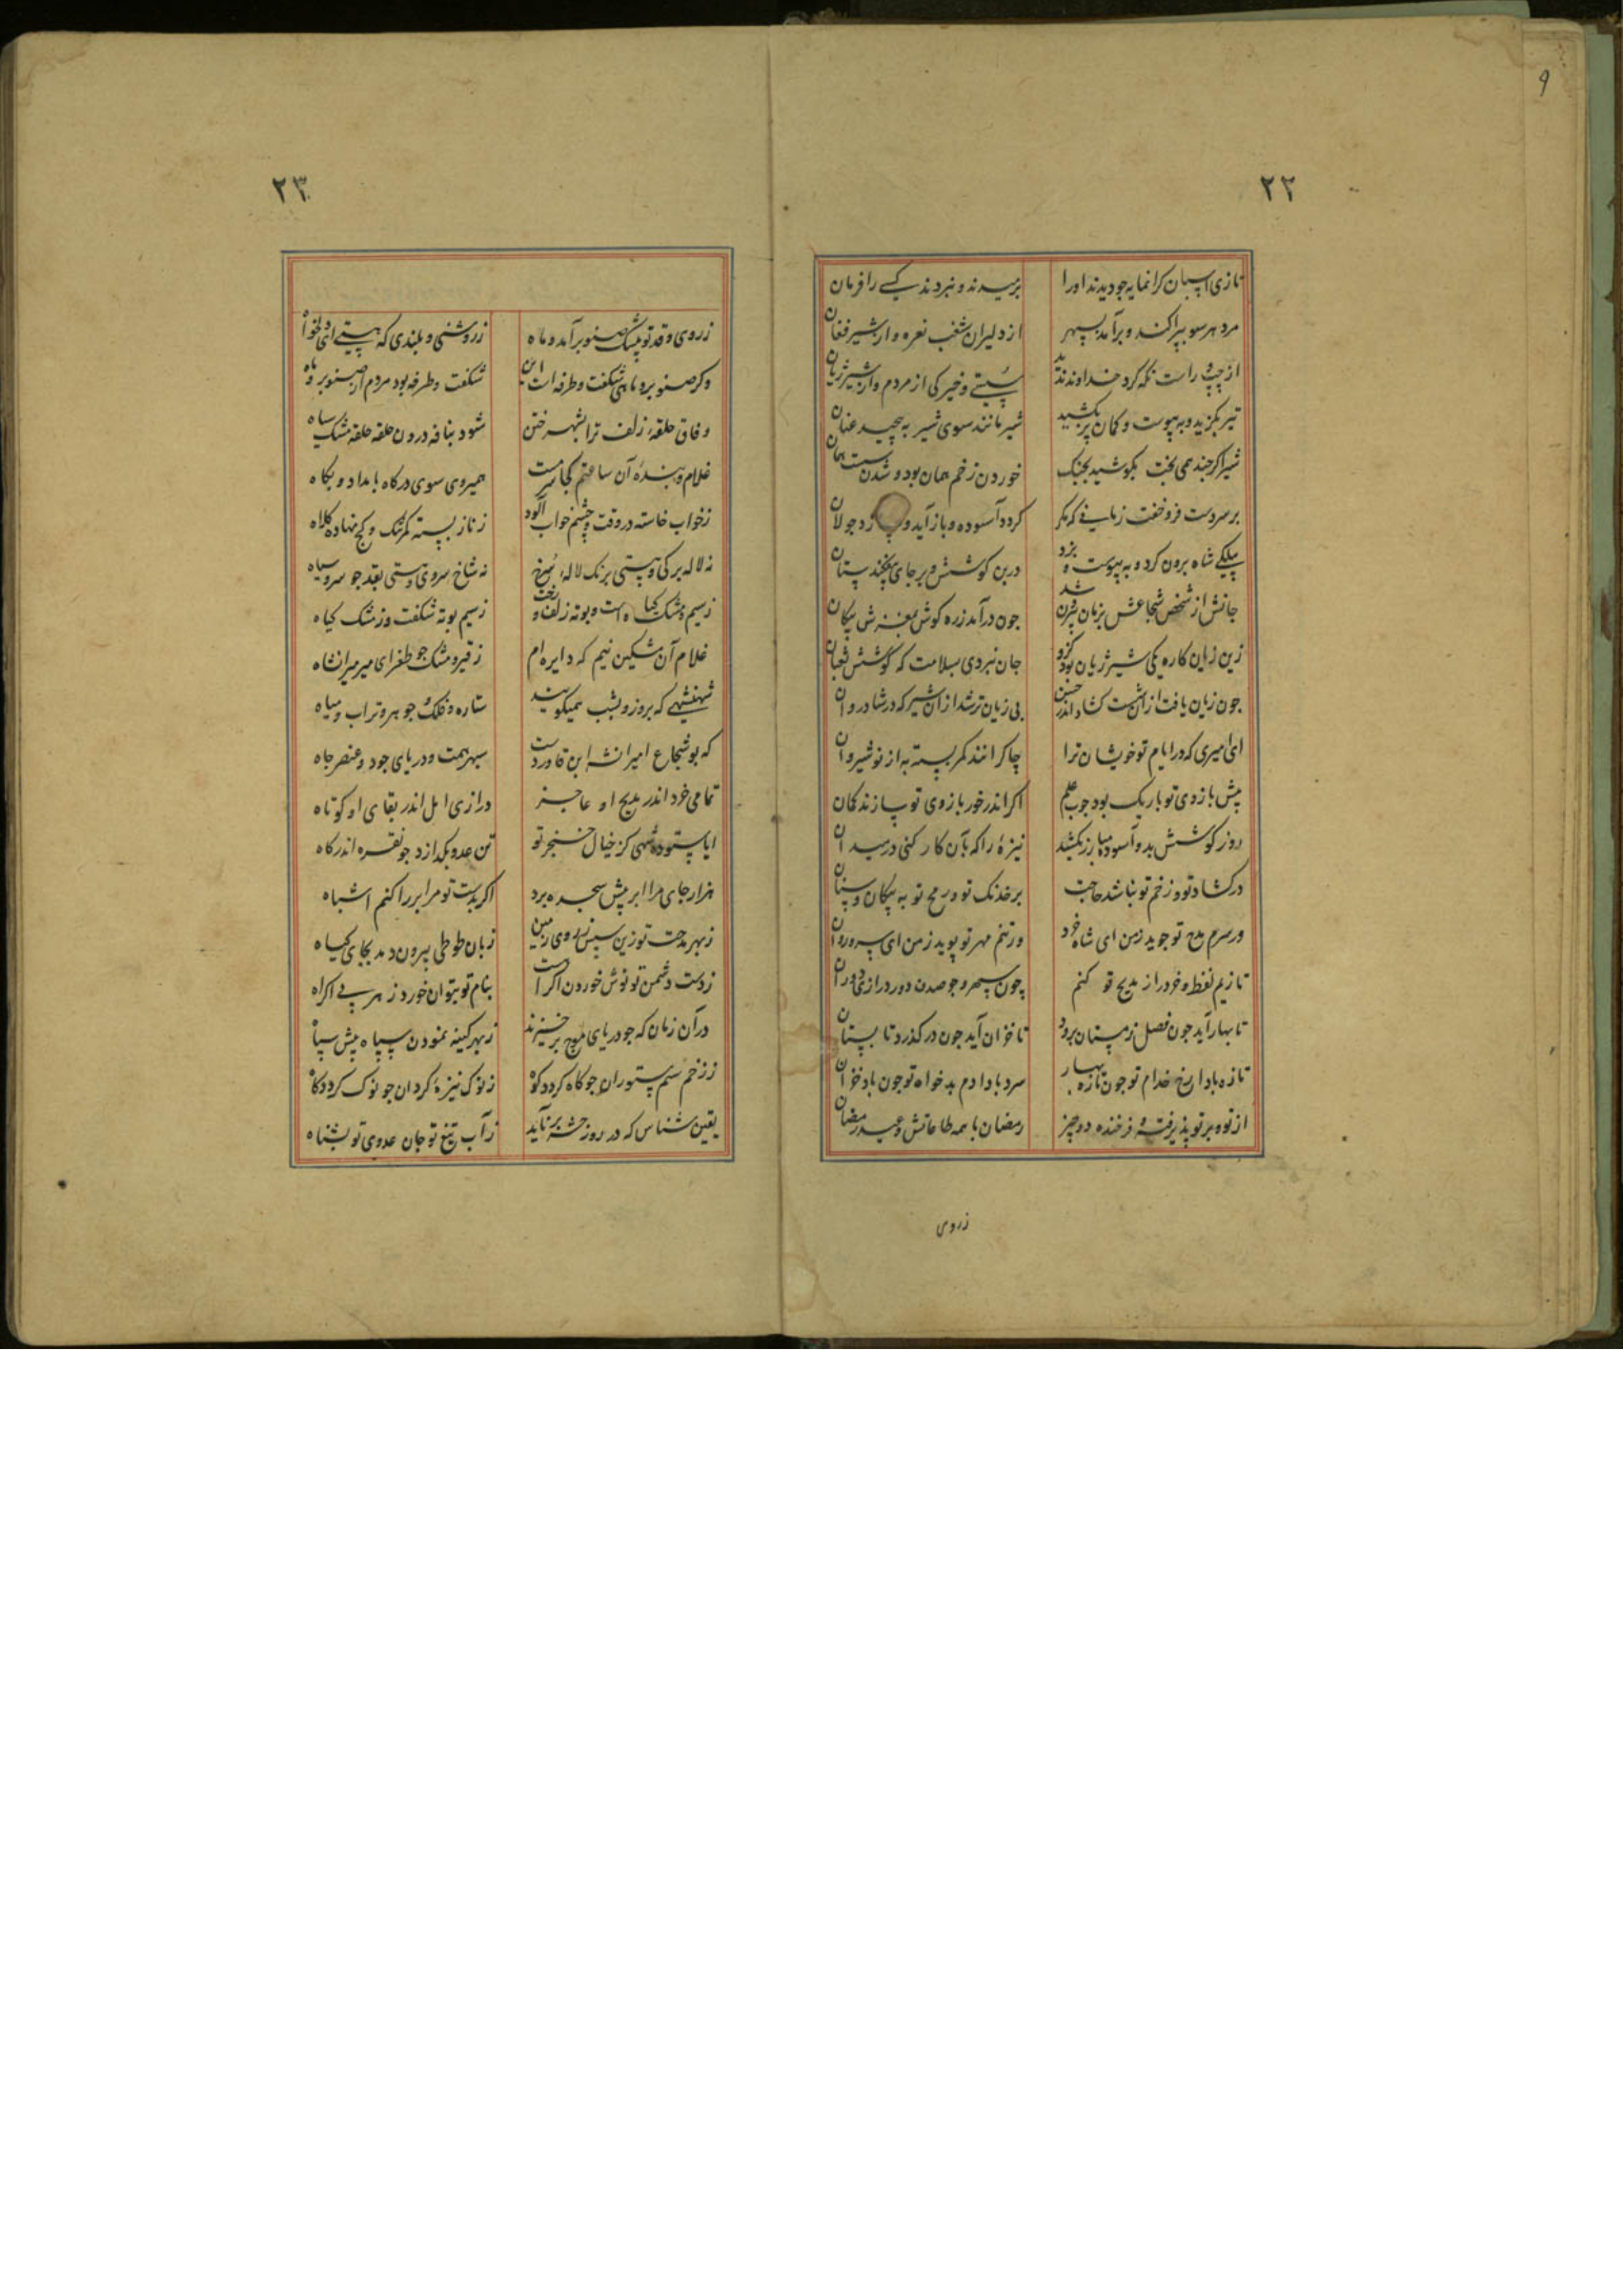 ۹
۲۲
تازی اسپان کرانمایه جو دیدند او را
برمیدند و نبردند کسے را فرمان
مرد هر سو بپراکند و برآمد بسپهر
از دلیران شغب نعره و از شیر فغان
از چپ و راست نکه کرد خداوند ندید
تیر بکزید و به پیوست و کمان پر بکشید
شیر مانند سوی شیر به پیچید عنان
شیر اکر چند همی بخت بکوشید بجنک
خوردن زخم همان بود و شدن سست همان
بر سر دست فرو خفت زمانے که مکر
کردد آسوده و باز آید و جولان
بیلکے شاه برون کرد و به پیوست و بزد
جانش از شخص شجاعش بزمان بیرون شد
جون درآمد زره کوش بمغزش پیکان
زین زیان کاره یکی شیر ژیان بود کزو
جان نبردی بسلامت که کوشش ثعبان
بی زیان تر شد از آن شیر که در شادروان
ای امیری که در ایام تو خویشان ترا
چاکرانند کمر بسته به از نوشیروان
پیش بازوی تو باریک بود جوب علم
اکر اندر خور بازوی تو سازند کمان
روز کوشش بدو آسوده مبارز بکشد
نیزهٔ را که بآن کار کنی در میدان
در کشاد تو و زخم تو نباشد حاجت
بر خدنک تو و رمح تو به پیکان و سنان
ور سرم مدح تو جوید ز من ای شاه خرد
ور تنم مهر تو پوید ز من ای سرو روان
تا زیم لفظ و خرد از مدیح تو کنم
تا بهار آید جون فصل زمستان برود
تا خزان آید جون در کذرد تابستان
تازه بادا رخ خدام تو جون تازه بهار
سرد بادا دم بدخواه تو جون باد خزان
از تو و بر تو پذیرفته و فرخنده دو چیز
رمضان با همه طاعاتش و عید رمضان
زروی
۲۳
زروی و قد تو بیشک صنوبر آمد و ماه
زروشنی و بلندی که هستے ای دلخواه
وکر صنوبر و ماهی شکفت و طرفه است این
شکفت و طرفه بود مردم از صنوبر و ماه
وفاق حلقهٔ زلف ترا بشهر ختن
شود بنافه درون حلقه حلقه مشک سیاه
غلام و بندهٔ آن ساعتم کجا سرمست
همیروی سوی درکاه بامداد و بکاه
زخواب خاسته در وقت و چشم خواب آلود
زناز بسته کمر تنک و کج نهاده کلاه
نه لاله برکی و هستی برنک لالهٔ سرخ
نه شاخ سروی و هستی بقد جو سرو سیاه
زسیم بوته شکفت و ز مشک کیاه
غلام آن مشکین نیم که دایره ام
زقیر و مشک جو طغرای میر میرانشاه
شهنشهے که بروز و بشب همیکویند
ستاره و فلک جوهر و تراب و میاه
که بو شجاع امیرانشه ابن قاوردست
سپهر همت و دریای جود و عنصر جاه
تمامی خرد اندر مدیح او عاجز
درازی امل اندر بقای او کوتاه
ایا ستوده شهی کز خیال خنجر تو
تن عدو بکدازد جو نقره اندر کاه
هزار جای مرا ابر پیش سجده برد
اکر بدست تو مر ابر را کنم اشباه
زبهر مدحت تو زین سپس ز روی زمین
زبان طوطی بیرون دمد بجای کیاه
زدست دشمن تو نوش خوردن اکراهست
بنام تو بتوان خورد زهر بے اکراه
در آن زمان که جو دریای موج برخیزند
زبهر کینه نمودن سپاه پیش سپاه
ززخم سم ستوران جو کاه کردد کوه
زنوک نیزهٔ کردان جو نوک کردد کاه
یقین شناس که در روز حشر برناید
زآب تیغ تو جان عدوی تو بشناه